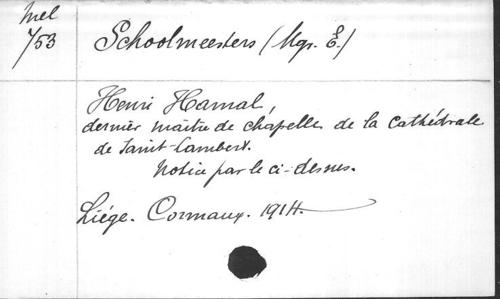 Mel
753
Schoolmeesters (Mgr. E.)
Henri Hamal,
dernier maître de chapelle de la Cathédrale
de Saint-Lambert.
Notice par le ci-dessus.
Liége. Cormaux. 1914.